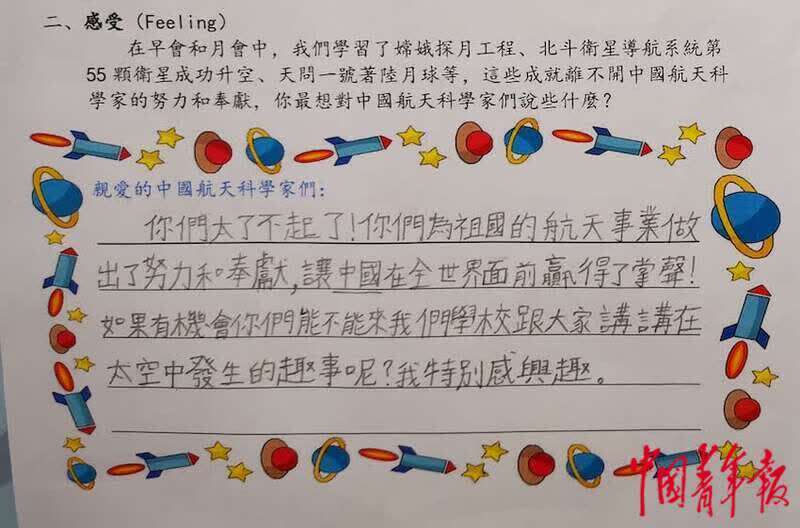 二、感受（Feeling）
在早會和月會中，我們學習了嫦娥探月工程、北斗衛星導航系統第
55 顆衛星成功升空、天問一號著陸月球等，這些成就離不開中國航天科
學家的努力和奉獻，你最想對中國航天科學家們說些什麼？
親愛的中國航天科學家們：
你們太了不起了！你們為祖國的航天事業做
出了努力和奉獻，讓中國在全世界面前贏得了掌聲！
如果有機會你們能不能來我們學校跟大家講講在
太空中發生的趣事呢？我特別感興趣。
中國青年报